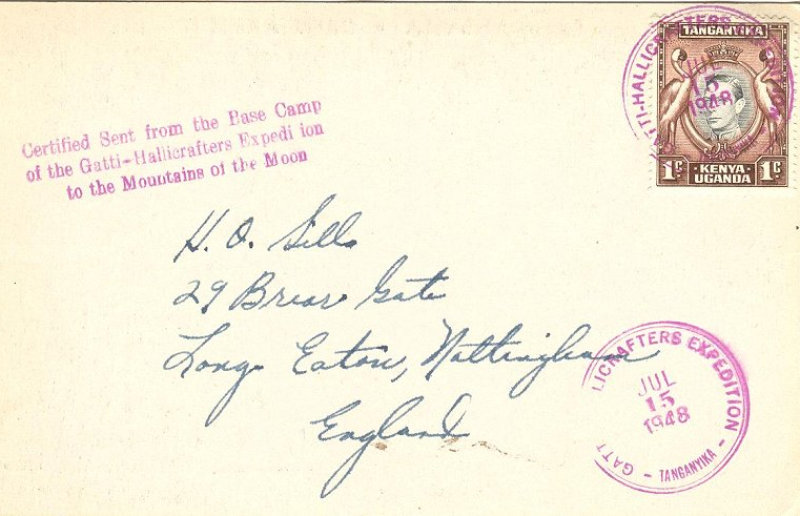 TANGANYIKA
1c KENYA UGANDA 1c
GATTI-HALLICRAFTERS EXPEDITION
JUL
15
1948
Certified Sent from the Base Camp
of the Gatti-Hallicrafters Expedi ion
to the Mountains of the Moon
H. O. Sills
29 Briar Gate
Long Eaton, Nottingham
England
GATT LICRAFTERS EXPEDITION
JUL
15
1948
- TANGANYIKA -